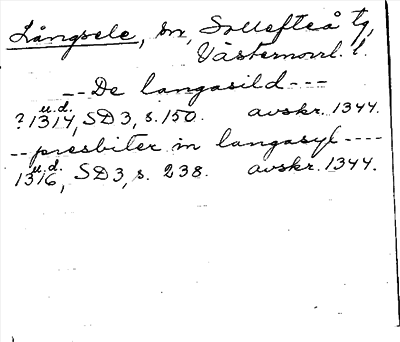 Långsele, sn, Sollefteå tg,
Västernorrl. l.
-- De langasild ---
? 1314, u.d. SD 3, s. 150. avskr. 1344.
-- presbiter in langasyl ----
1316, u.d. SD 3, s. 238. avskr. 1344.